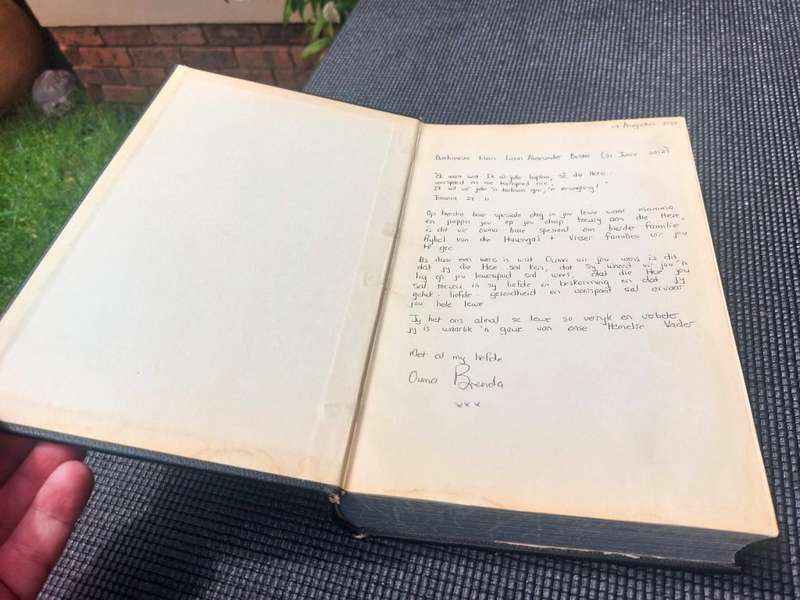 Augustus
Liam Alexander (21 Junie 2012)
Ek weet wat Ek vir julle beplan, sê die Here:
voorspoed en nie teenspoed nie,
Ek wil vir julle 'n toekoms gee, 'n verwagting!
11
Op hierdie baie spesiale dag in jou lewe waar mamma
en pappa jou op jou doop terug aan die Here,
is dit vir ouma baie spesiaal om hierdie familie
Bybel van die + Visser families vir jou
te gee
As daar een wens is wat Ouma vir jou wens is dit
dat jy die Here sal ken, dat Sy Woord vir jou 'n
lig op jou lewenspad sal wees, dat die Here jou
sal in sy liefde en beskerming en dat jy
geluk - liefde - gesondheid en voorspoed sal ervaar
jou hele lewe
Jy het ons almal se lewe so verryk en verbeter
jy is waarlik 'n gawe van onse Hemelse Vader
Met al my liefde
Ouma Brenda
xxx